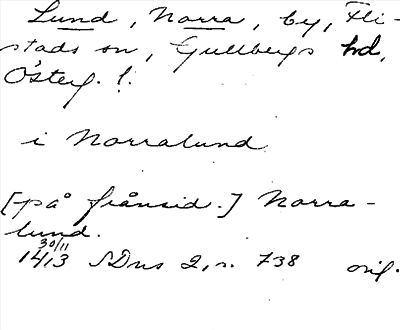 Lund, Norra, by, Fli-
stads sn, Gullbergs hd,
Österg. l.
i Norralund
[på frånsid.] Norra-
lund.
30/11
1413 SDns 2, s. 738 orig.